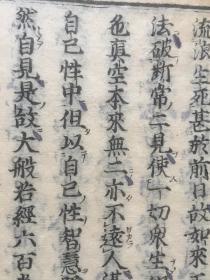 流浪生死甚於前日故如來說
法破斷常二見使一切眾生
色真空本來無二亦不遠人
自己性中但以自己性智慧
然自見是故大般若經六百